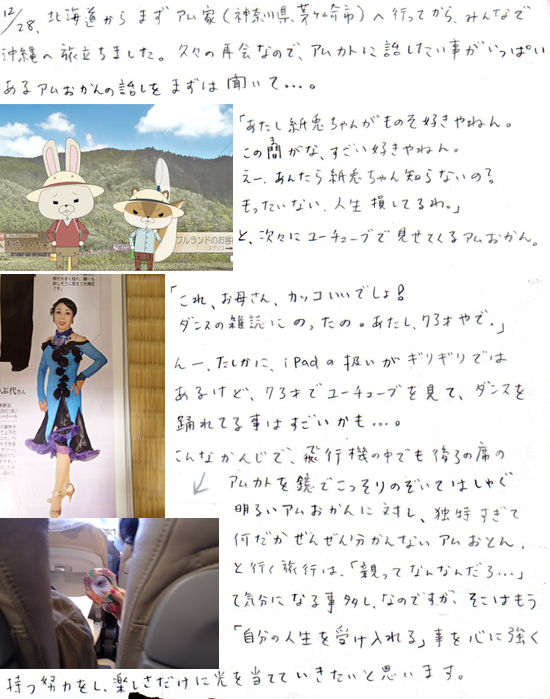 12/28、北海道からまずアム家(神奈川県茅ヶ崎市)へ行ってから、みんなで
沖縄へ旅立ちました。久々の再会なので、アムカトに話したい事がいっぱい
あるアムおかんの話しをまずは聞いて…。
「あたし紙兎ちゃんがものそ好きやねん。
この間がな、すごい好きやねん。
えー、あんたら紙兎ちゃん知らないの?
もったいない、人生損してるわ。」
と、次々にユーチューブで見せてくるアムおかん。
プルランドのお客
「これ、お母さん、カッコいいでしょ?
ダンスの雑誌にのったの。あたし、73才やで。」
んー、たしかに、iPadの扱いがギリギリでは
あるけど、73才でユーチューブを見て、ダンスを
踊れてる事はすごいかも…。
こんなかんじで、飛行機の中でも後ろの席の
アムカトを鏡でこっそりのぞいてはしゃぐ
明るいアムおかんに対し、独特すぎて
何だかぜんぜん分かんないアムおとん、
と行く旅行は、「親ってなんなんだろ…」
て気分になる事多し、なのですが、そこはもう
「自分の人生を受け入れる」事を心に強く
持つ努力をし、楽しさだけに光を当てていきたいと思います。
ぶ代さん